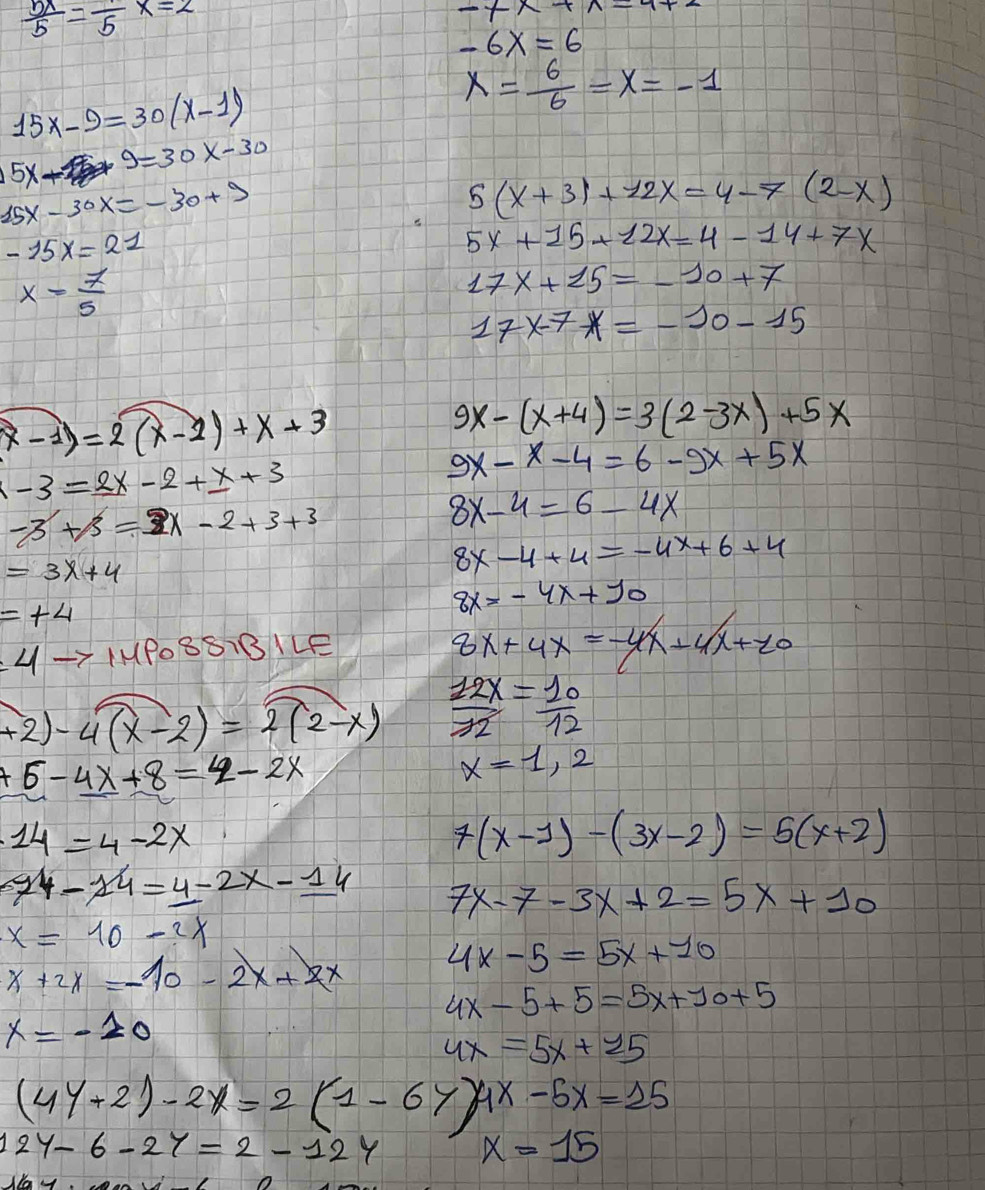 5x/5 = /5 x=2
15x-9=30(x-1)
15x- 9=30x-30
15x-30x=-30+9
-15x=21
x=7/5
x-1)=2(x-1)+x+3
-3=2x-2+x+3
-3+3=3x-2+3+3
=3x+4
=+4
4→IMPOSSIBILE
+2)-4(x-2)=2(2-x)
+6-4x+8=4-2x
14=4-2x
14-14=4-2x-14
x=10-2x
x+2x=-10-2x+2x
x=-10
(4y+2)-2y=2(1-6y)
12y-6-2y=2-12y
-7x+x=4+2
-6x=6
x=6/6=x=-1
5(x+3)+12x=4-7(2-x)
5x+15+12x=4-14+7x
17x+15=-10+7
17x-7x=-10-15
9x-(x+4)=3(2-3x)+5x
9x-x-4=6-9x+5x
8x-4=6-4x
8x-4+4=-4x+6+4
8x=-4x+10
8x+4x=-4x+4x+10
12x/12=10/12
x=1,2
7(x-1)-(3x-2)=5(x+2)
7x-7-3x+2=5x+10
4x-5=5x+10
4x-5+5=5x+10+5
4x=5x+15
4x-5x=15
x=15